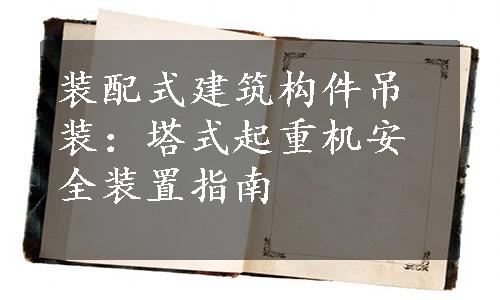 装配式建筑构件吊
装：塔式起重机安
全装置指南